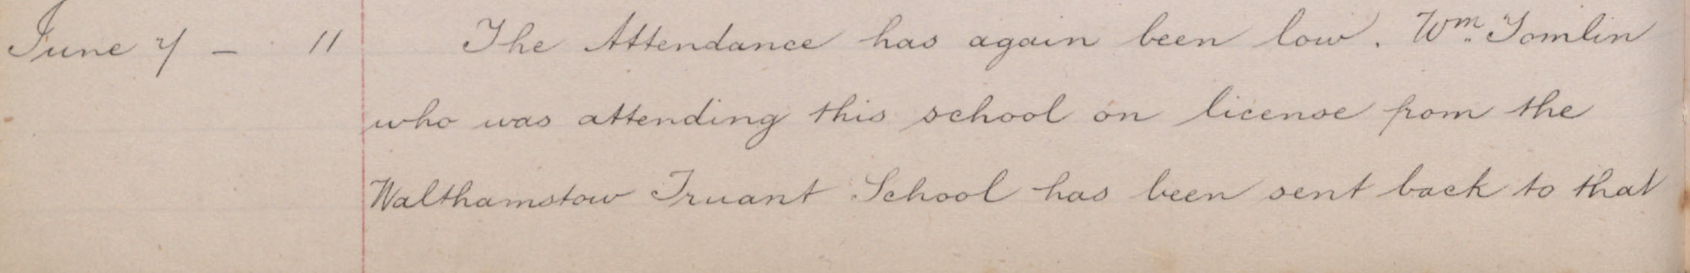 June 7 - 11 The Attendance has again been low. Wm. Tomlin
who was attending this school on license from the
Walthamstow Truant School has been sent back to that